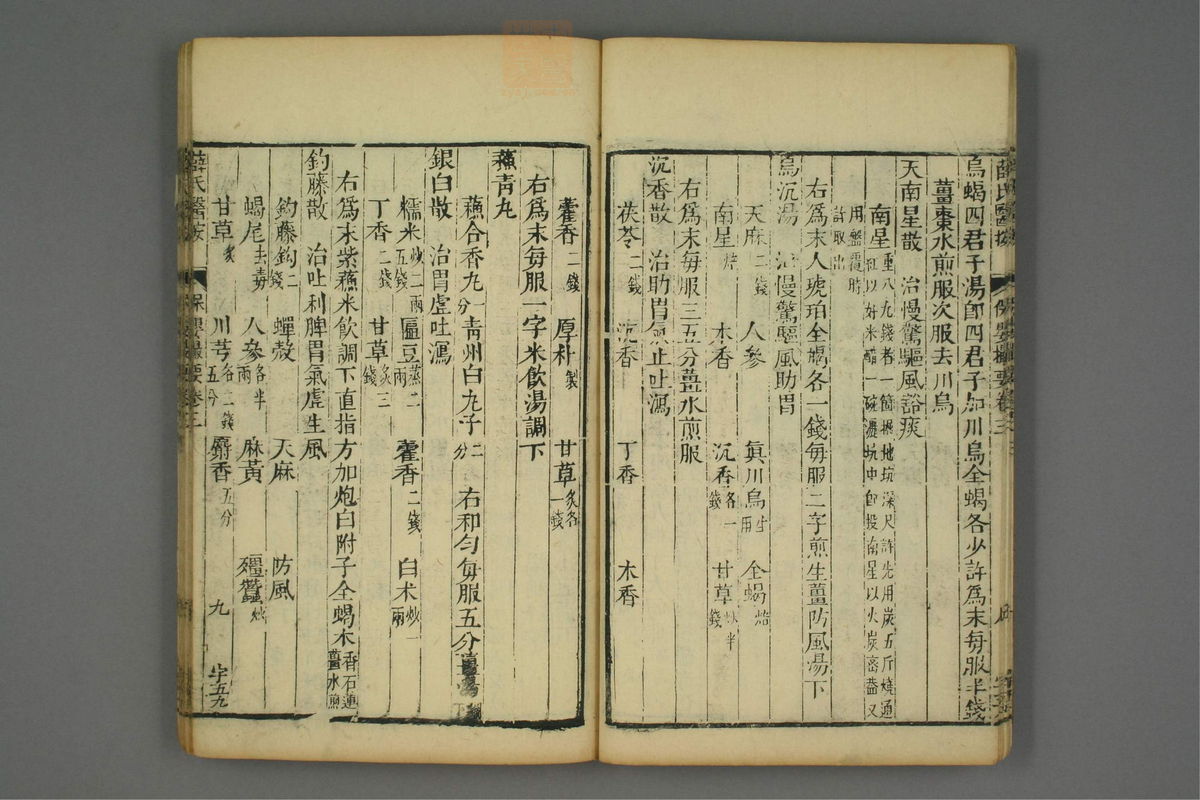 烏蝎四君子湯即四君子加川烏全蝎各少許為末每服半錢
薑棗水煎服次服去川烏
天南星散 治慢驚驅風豁痰
南星重八九錢者一箇掘地坑深尺許先用炭五斤燒通
紅以好米醋一碗灑坑中即投南星以火炭密蓋又
用盤覆時
許取出
右為末入琥珀全蝎各一錢每服二字煎生薑防風湯下
烏沉湯 治慢驚驅風助胃
天麻二錢 人參 眞川烏生用 全蝎焙
南星焙 木香 沉香各一錢 甘草炒半錢
右為末每服三五分薑水煎服
沉香散 治助胃氣止吐瀉
茯苓二錢 沉香 丁香 木香
藿香二錢 厚朴製 甘草炙各一錢
右為末每服一字米飲湯調下
蘇青丸
蘇合香丸一分 青州白丸子二分 右和勻每服五分薑湯下
銀白散 治胃虛吐瀉
糯米炒二兩五錢 匾豆蒸二兩 藿香二錢 白朮炒一兩
丁香二錢 甘草炙三錢
右為末紫蘇米飲調下直指方加炮白附子全蝎木香石蓮薑水煎
釣藤散 治吐利脾胃氣虛生風
釣藤鈎二錢 蟬殼 天麻 防風
蝎尾去毒 人參各半兩 麻黃 殭蠶炒
甘草炙 川芎各二錢五分 麝香五分
薛氏醫按 保嬰撮要卷三 九 字五九